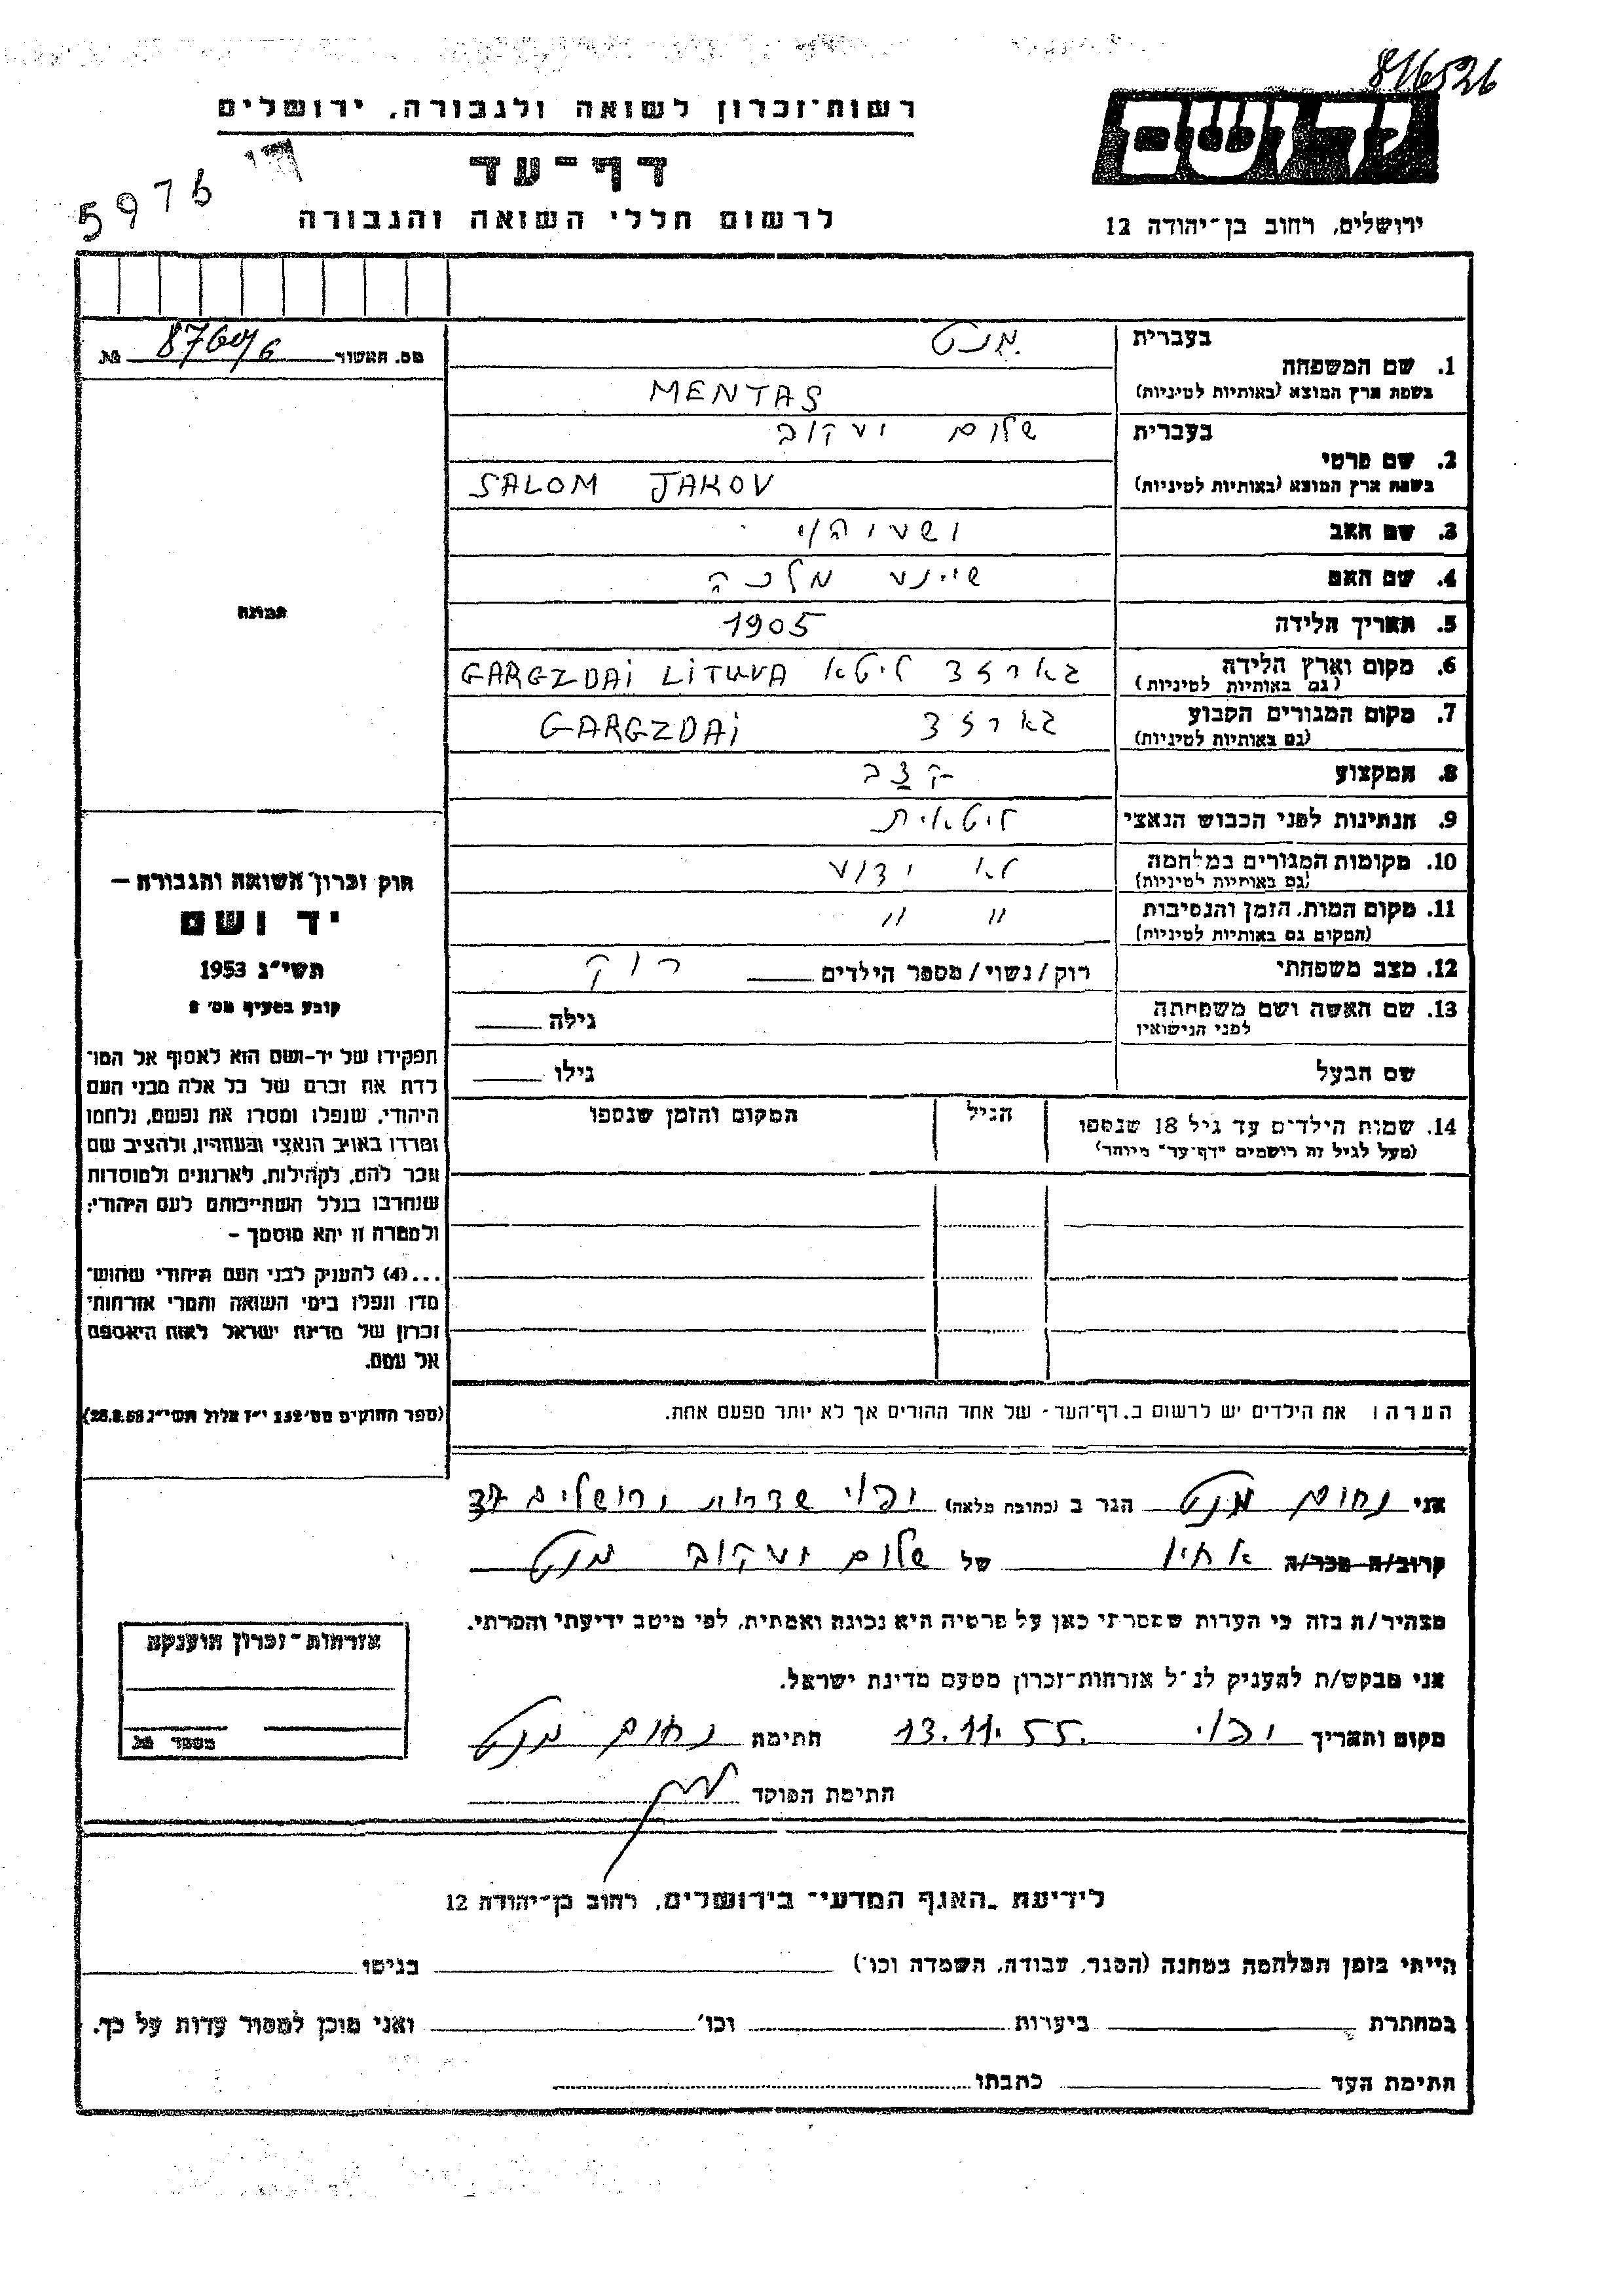 816526
רשות־זכרון לשואה ולגבורה, ירושלים
יד ושם
דף־עד
5976
לרשום חללי השואה והגבורה
ירושלים, רחוב בן־יהודה 12
מס. האשור 8760/6
1. שם המשפחה
בעברית מנט
בשפת ארץ המוצא (באותיות לטיניות) MENTAS
2. שם פרטי
בעברית שלום יעקוב
בשפת ארץ המוצא (באותיות לטיניות) SALOM JAKOV
3. שם האב ישעיהו
4. שם האם שיינע מלכה
תמונה
5. תאריך הלידה 1905
6. מקום וארץ הלידה (גם באותיות לטיניות) גארזד ליטא GARGZDAi LiTUVA
7. מקום המגורים הקבוע (גם באותיות לטיניות) גארזד GARGZDAi
8. המקצוע קצב
9. הנתינות לפני הכבוש הנאצי ליטאית
10. מקומות המגורים במלחמה (גם באותיות לטיניות) לא ידוע
11. מקום המות, הזמן והנסיבות (המקום גם באותיות לטיניות) " "
12. מצב משפחתי רוק/נשוי/מספר הילדים רוק
13. שם האשה ושם משפחתה לפני הנישואין גילה
שם הבעל גילו
14. שמות הילדים עד גיל 18 שנספו (מעל לגיל זה רושמים "דף־עד" מיוחד) הגיל המקום והזמן שנספו
חוק זכרון השואה והגבורה —
יד ושם
תשי"ג 1953
קובע בסעיף מס' 2
תפקידו של יד-ושם הוא לאסוף אל המו־
לדת את זכרם של כל אלה מבני העם
היהודי, שנפלו ומסרו את נפשם, נלחמו
ומרדו באויב הנאצי ובעוזריו, ולהציב שם
וזכר להם, לקהילות, לארגונים ולמוסדות
שנחרבו בגלל השתייכותם לעם היהודי;
ולמטרה זו יהא מוסמך –
...(4) להעניק לבני העם היהודי שהוש־
מדו ונפלו בימי השואה והמרי אזרחות־
זכרון של מדינת ישראל לאות היאספם
אל עמם.
(ספר החוקים מס' 132 י"ז אלול תשי"ג 28.8.53)
הערה: את הילדים יש לרשום ב„דף־העד" של אחד ההורים אך לא יותר מפעם אחת.
אני נחום מנט הגר ב (כתובת מלאה) יפו שדרות ירושלים 37
קרוב/ה מכר/ה אחיו של שלום יעקוב מנט
מצהיר/ה בזה כי העדות שמסרתי כאן על פרטיה היא נכונה ואמתית, לפי מיטב ידיעתי והכרתי.
אני מבקש/ת להעניק לנ"ל אזרחות־זכרון מטעם מדינת ישראל.
מקום ותאריך יפו 13.11.55. חתימה נחום מנט
חתימת הפוקד
אזרחות־זכרון הוענקה
מספר
לידיעת „האגף המדעי" בירושלים, רחוב בן־יהודה 12
הייתי בזמן המלחמה במחנה (הסגר, עבודה, השמדה וכו') בגיטו
במחתרת ביערות וכו' ואני מוכן למסור עדות על כך.
חתימת העד כתבתו